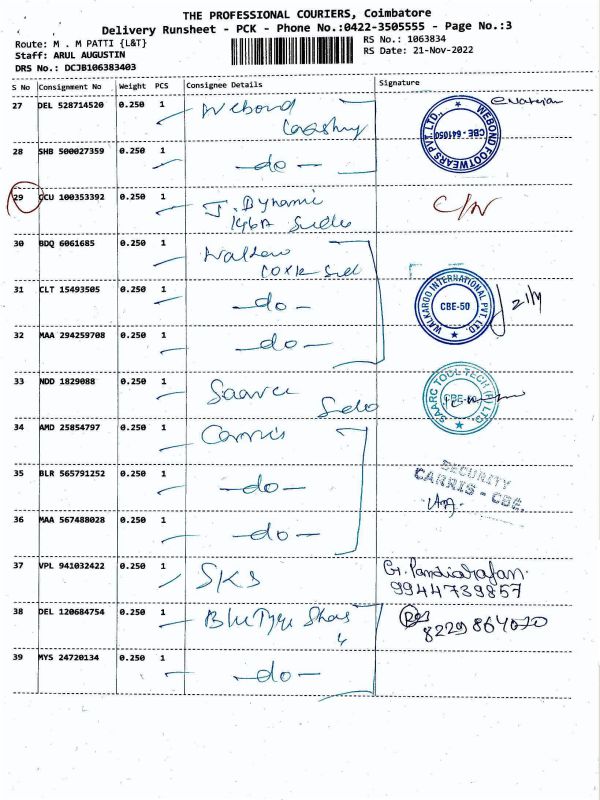 THE PROFESSIONAL COURIERS, Coimbatore
Delivery Runsheet - PCK - Phone No.:0422-3505555 - Page No.:3
Route: M . M PATTI {L&T}
RS No.: 1063834
Staff: ARUL AUGUSTIN
RS Date: 21-Nov-2022
DRS No.: DCJB106383403
S No Consignment No Weight PCS Consignee Details Signature
27 DEL 528714520 0.250 1 Webond
WEBOND FOOTWEARS PVT. LTD., CBE - 641050
28 SHB 500027359 0.250 1 -do-
29 CCU 100353392 0.250 1 J. Dynamic C/N
146A Sidko
30 BDQ 6061685 0.250 1
31 CLT 15493505 0.250 1 -do-
WALKAROO INTERNATIONAL PVT. LTD. CBE-50
32 MAA 294259708 0.250 1 -do-
33 NDD 1829088 0.250 1
SAARC TOOL TECH (P) LTD CBE-50
34 AMD 25854797 0.250 1 Carris
35 BLR 565791252 0.250 1 -do-
SECURITY
CARRIS - CBE.
36 MAA 567488028 0.250 1 -do-
37 VPL 941032422 0.250 1 SKS G. Pandiarajan
9944739857
38 DEL 120684754 0.250 1
39 MYS 24720134 0.250 1 -do-